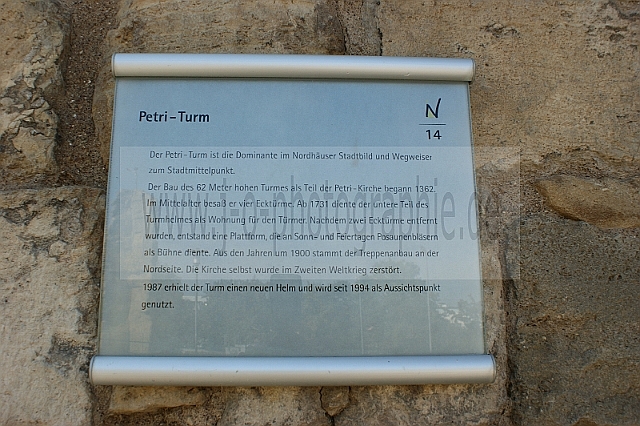 Petri-Turm
N
14
Der Petri-Turm ist die Dominante im Nordhäuser Stadtbild und Wegweiser
zum Stadtmittelpunkt.
Der Bau des 62 Meter hohen Turmes als Teil der Petri-Kirche begann 1362.
Im Mittelalter besaß er vier Ecktürme. Ab 1731 diente der untere Teil des
Turmhelmes als Wohnung für den Türmer. Nachdem zwei Ecktürme entfernt
wurden, entstand eine Plattform, die an Sonn- und Feiertagen Posaunenbläsern
als Bühne diente. Aus den Jahren um 1900 stammt der Treppenanbau an der
Nordseite. Die Kirche selbst wurde im Zweiten Weltkrieg zerstört.
1987 erhielt der Turm einen neuen Helm und wird seit 1994 als Aussichtspunkt
genutzt.